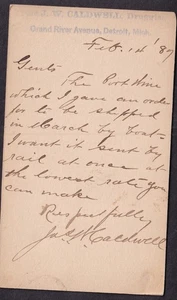 J. W. CALDWELL, Druggist,
Grand River Avenue, Detroit, Mich.
Feb. 14' 87
Gents
The Port Wine
which I gave an order
for to be shipped
in March by boat
I want it sent by
rail at once at
the lowest rate you
can make
Respectfully
Jas W Caldwell